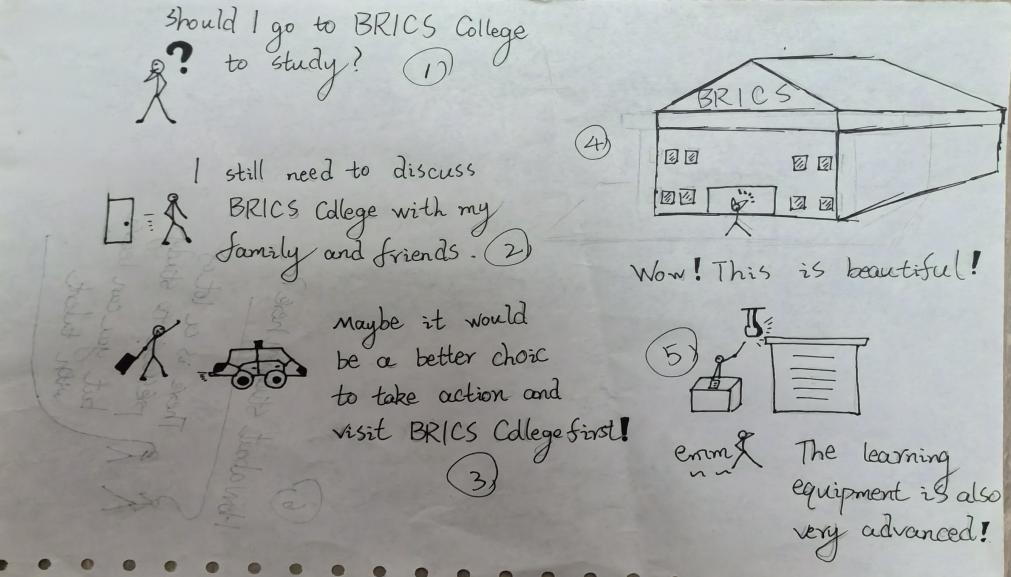 Should I go to BRICS College
to study? ①
?
I still need to discuss
BRICS College with my
family and friends. ②
Maybe it would
be a better choic
to take action and
visit BRICS College first!
③
BRICS
④
Wow! This is beautiful!
⑤
emm
The learning
equipment is also
very advanced!